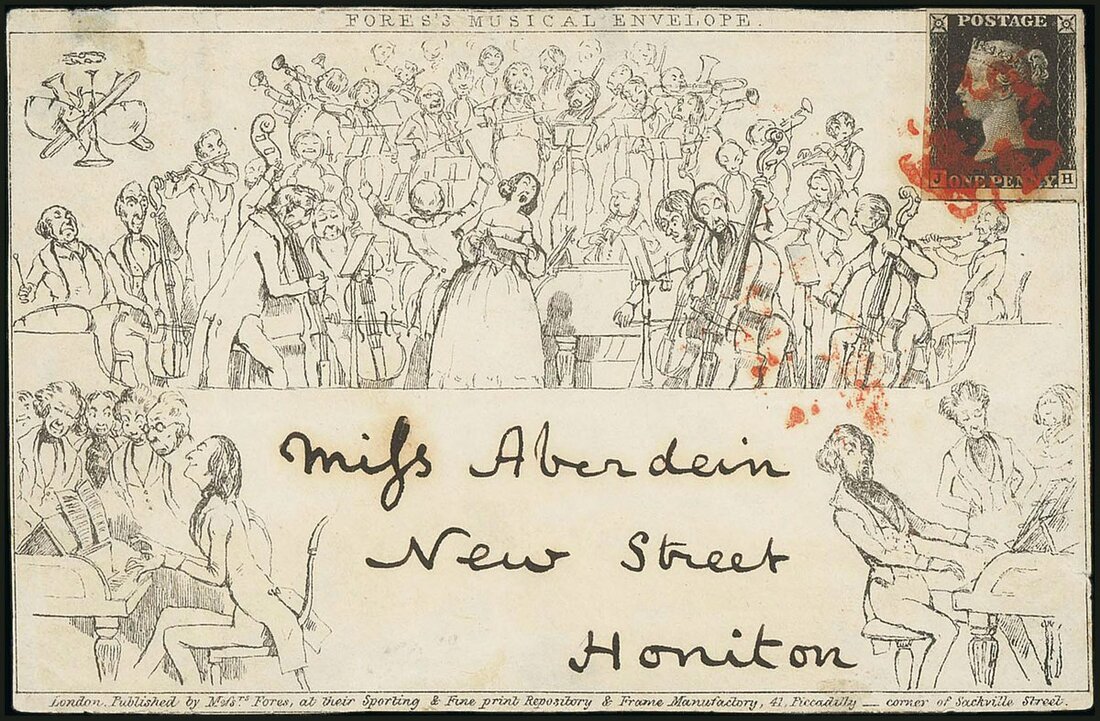 FORES'S MUSICAL ENVELOPE.
POSTAGE
J ONE PENNY H
Miſs Aberdein
New Street
Honiton
London. Published by Messrs Fores, at their Sporting & Fine print Repository & Frame Manufactory, 41, Piccadilly — corner of Sackville Street.